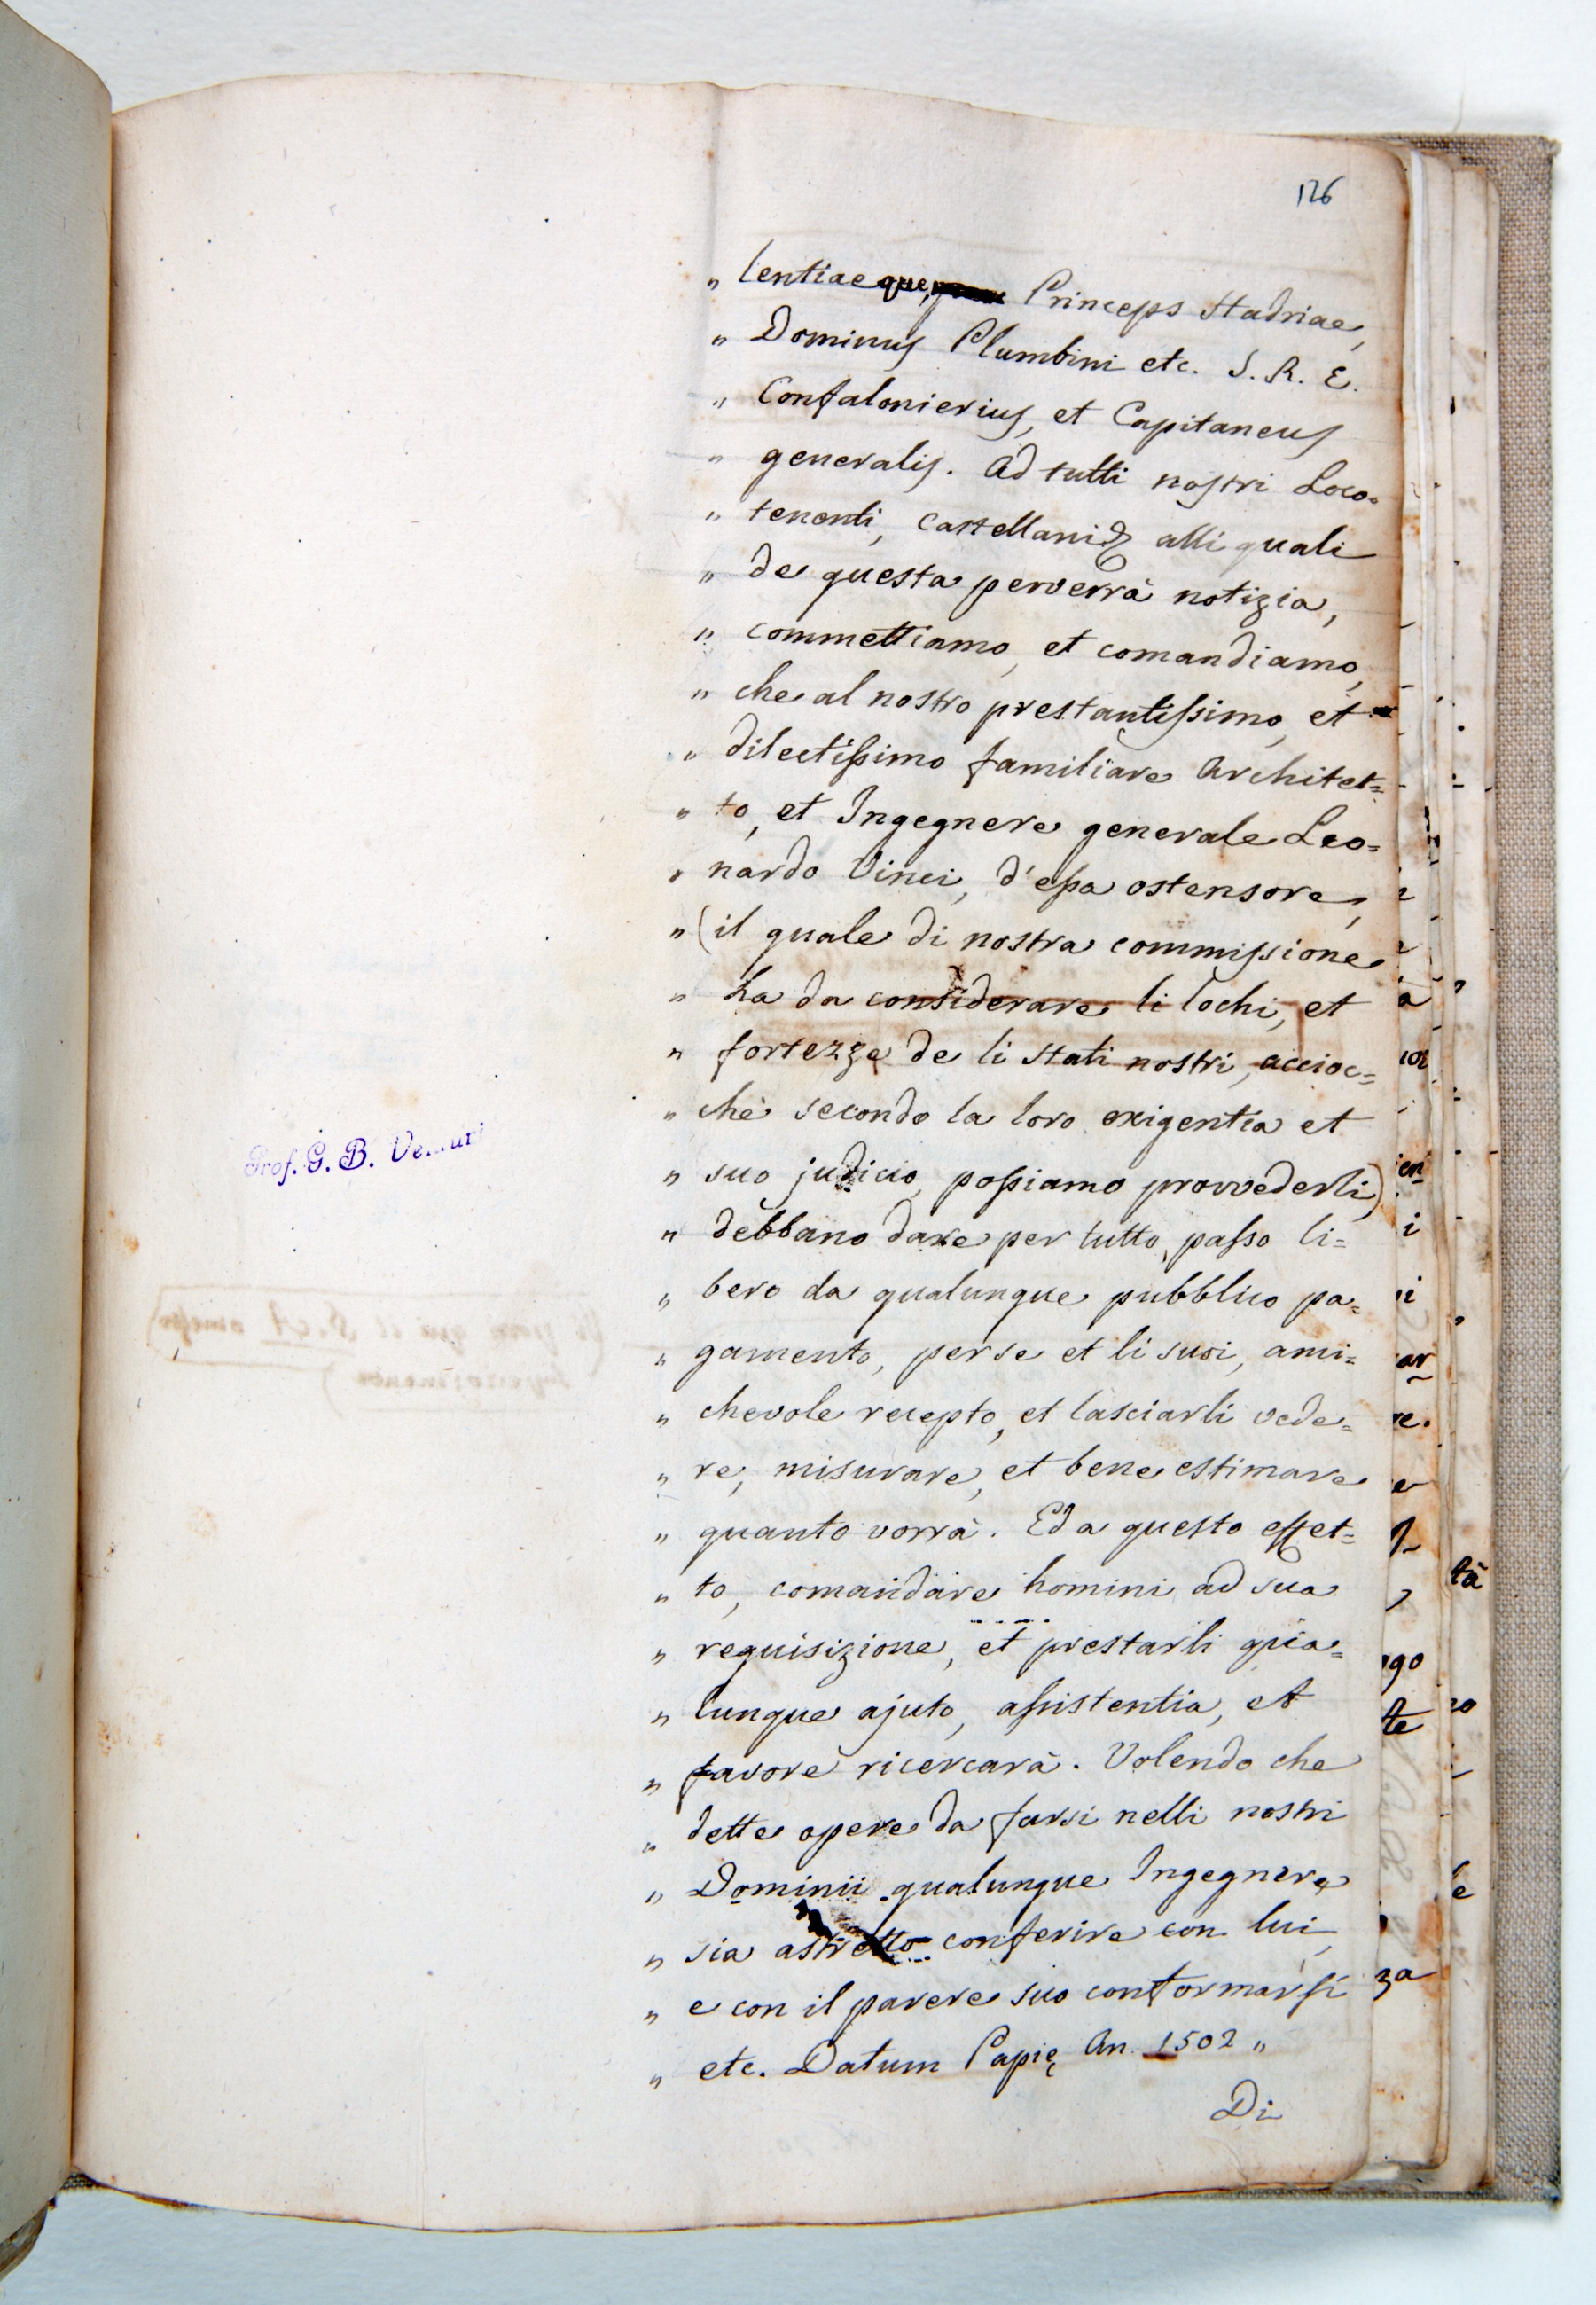 126
„ lentiaeque, Princeps Hadriae,
„ Dominus Plumbini etc. S. R. E.
„ Confalonierius, et Capitaneus
„ generalis. Ad tutti nostri Loco=
„ tenenti, Castellani & alli quali
„ de questa perverrà notizia,
„ commettiamo, et comandiamo,
„ che al nostro prestantissimo, et
„ dilectissimo familiare Architet=
„ to, et Ingegnere generale Leo=
„ nardo Vinci, d'essa ostensore,
„ (il quale di nostra commissione
„ ha da considerare li lochi, et
„ fortezze de li stati nostri, accioc=
„ chè secondo la loro exigentia et
„ suo judicio, possiamo provvederli)
„ debbano dare per tutto, passo li=
„ bero da qualunque pubblico pa=
„ gamento, per se et li suoi, ami=
„ chevole recepto, et lasciarli vede=
„ re, misurare, et bene estimare
„ quanto vorrà. Ed a questo effet=
„ to, comandare homini ad sua
„ requisizione, et prestarli qua=
„ lunque ajuto, assistentia, et
„ favore ricercarà. Volendo che
„ dette opere da farsi nelli nostri
„ Dominii qualunque Ingegnere
„ sia astretto conferire con lui,
„ e con il parere suo conformarsi
„ etc. Datum Papię An. 1502 „
Di
Prof. G. B. Venturi